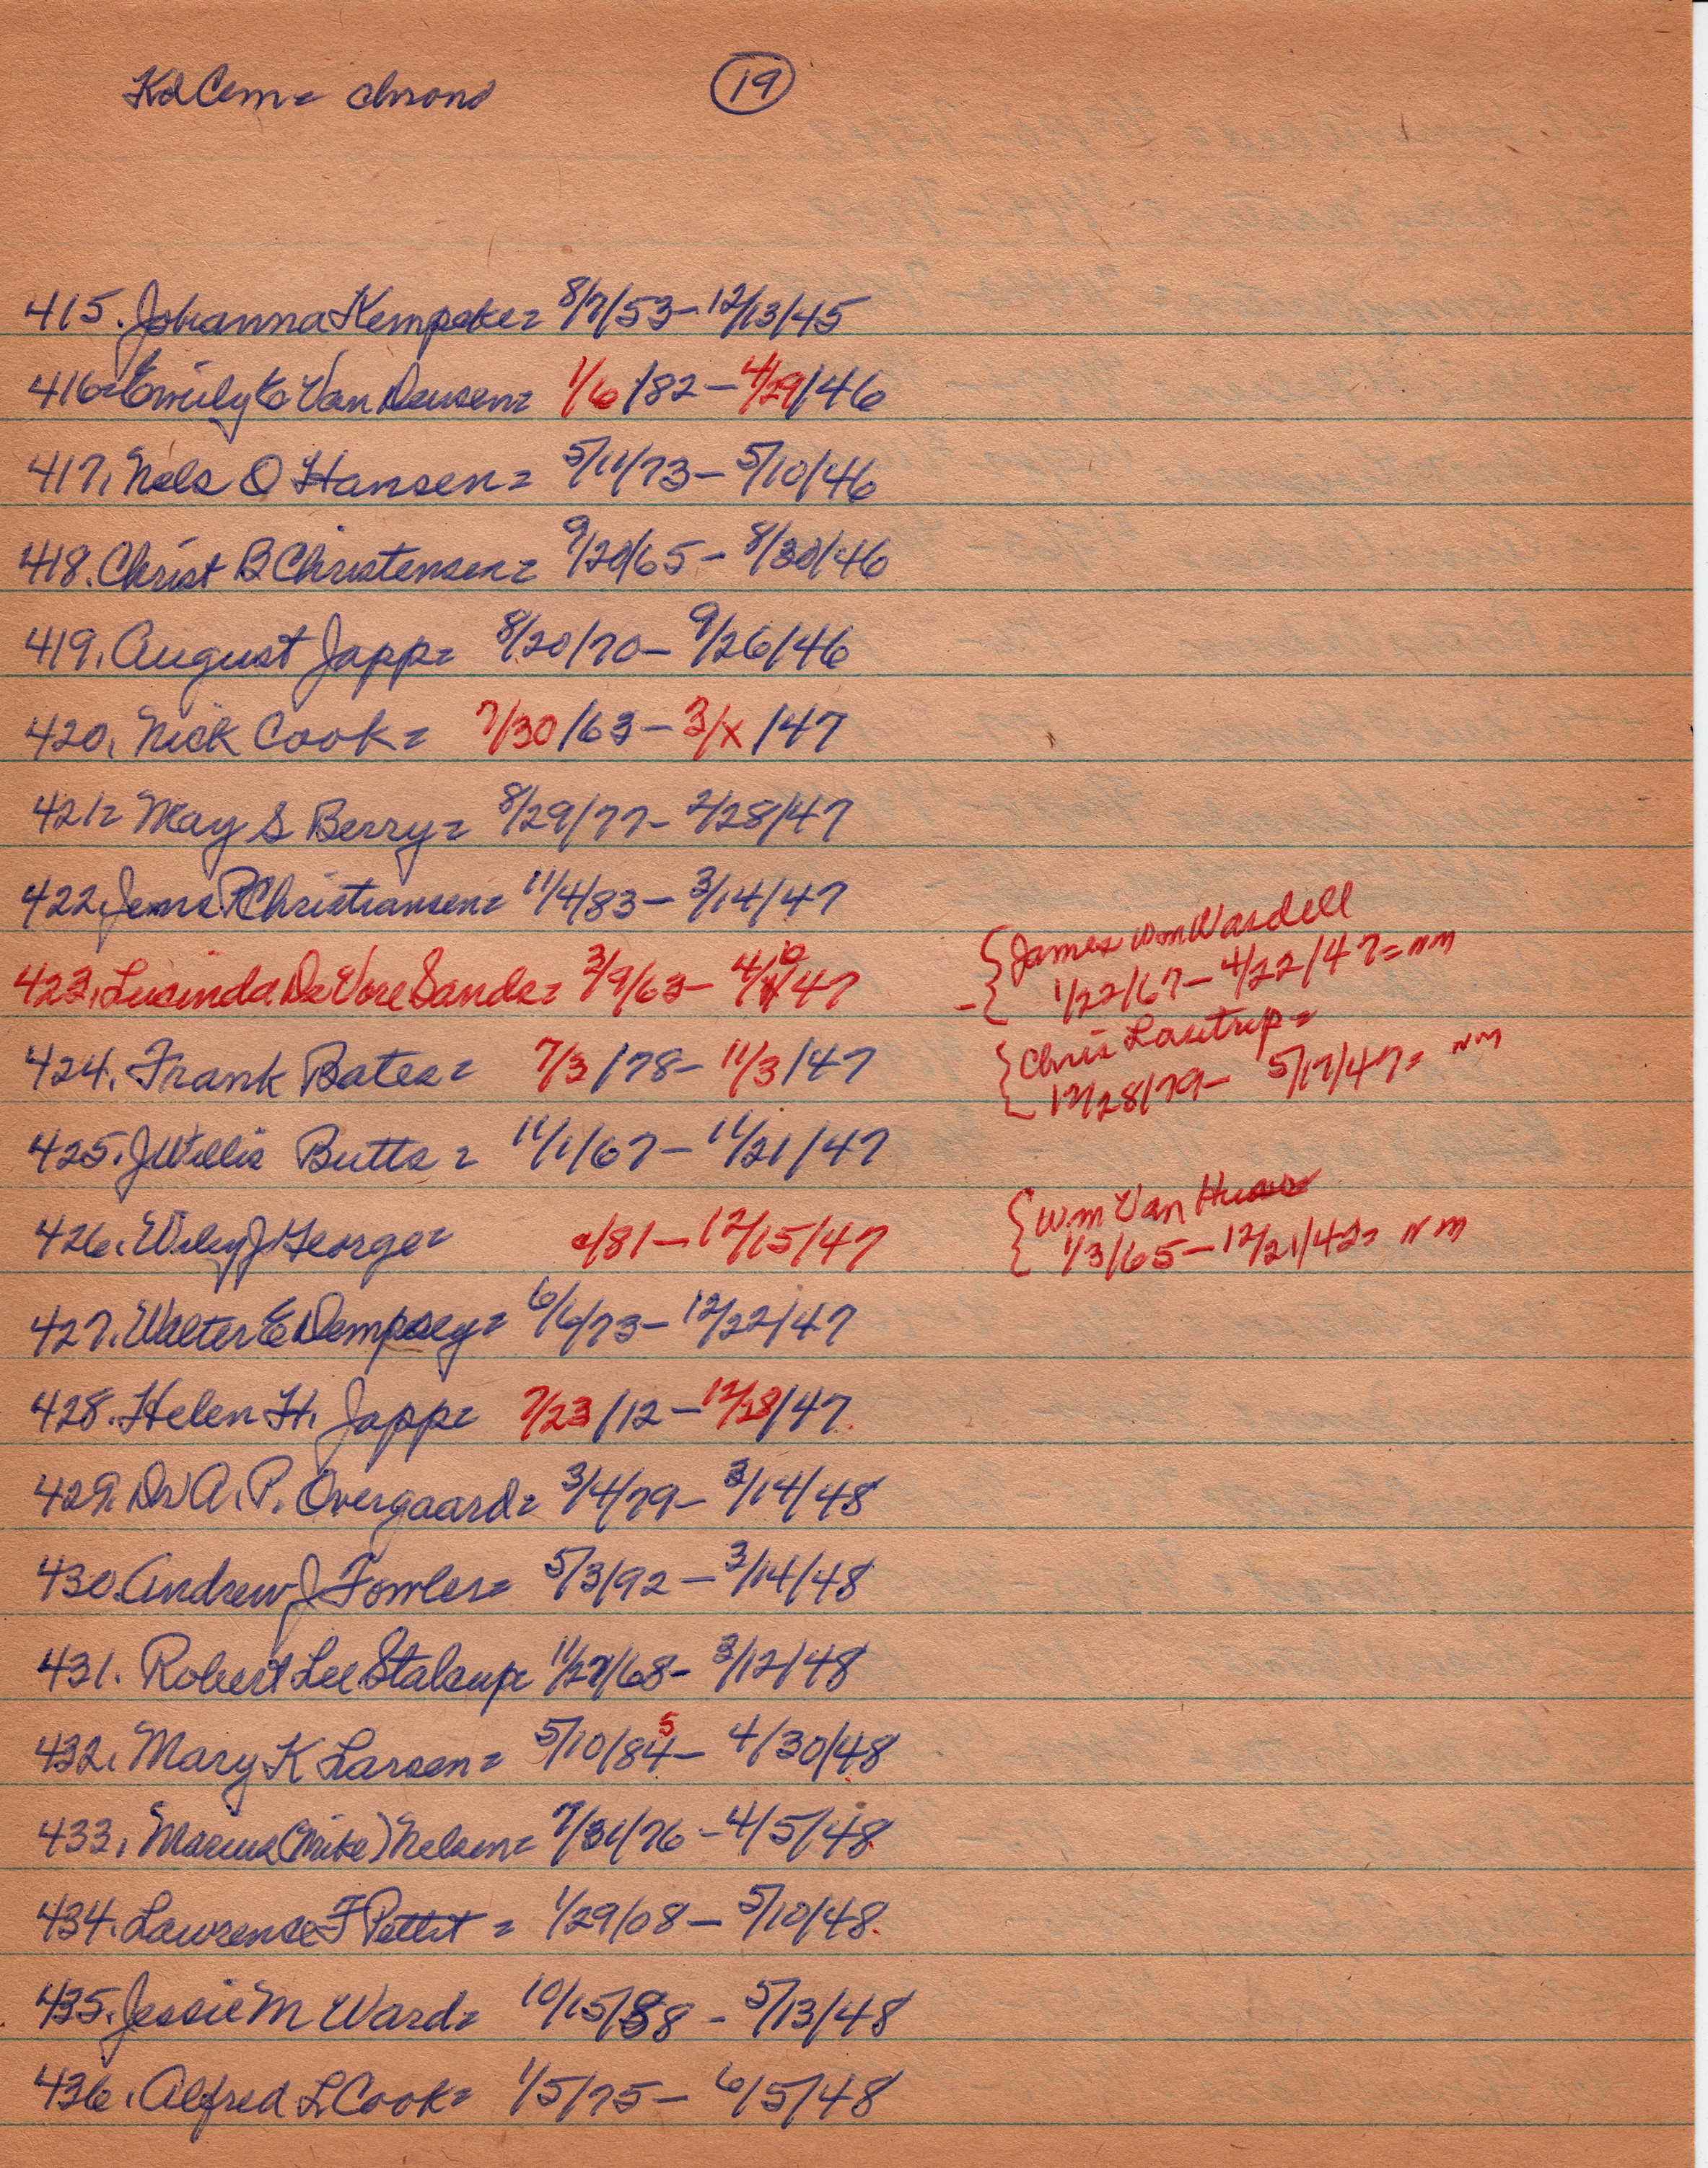 Kd Cem = chrono
19
415. Johanna Kempcke = 8/7/53 - 12/13/45
416 = Emily E Van Deusen = 1/6/82 - 4/29/46
417. Nels O Hansen = 5/11/73 - 5/10/46
418. Christ B Christensen = 9/20/65 - 8/30/46
419. August Japp = 8/20/70 - 9/26/46
420. Nick Cook = 7/30/63 - 3/x/47
421 = May S Berry = 8/29/77 - 2/28/47
422. Jens P Christiansen = 11/4/83 - 3/14/47
423. Lucinda DeVore Sands = 3/9/63 - 4/6/47
{James Wm Wardell
1/22/67 - 4/22/47 = nm
424. Frank Bates = 7/3/78 - 11/3/47
{Chris Lastrup =
12/28/79 - 5/17/47 = nm
425. J Willis Butts = 11/1/67 - 11/21/47
426. Wiley J George = c/81 - 12/15/47
{Wm Van
1/3/65 - 12/21/47 = nm
427. Walter E Dempsey = 6/6/73 - 12/22/47
428. Helen H. Japp = 7/23/12 - 12/28/47
429. Dr A. P. Overgaard = 3/4/79 - 3/14/48
430. Andrew J Fowler = 5/3/92 - 3/14/48
431. Robert Lee Stalcup = 11/27/68 - 3/12/48
5
432. Mary K Larsen = 5/10/84 - 4/30/48
433. Marius (Mike) Nelsen = 7/31/76 - 4/5/48
434. Lawrence F Pettit = 1/29/08 - 5/10/48
435. Jessie M Ward = 10/15/88 - 5/13/48
436. Alfred L Cook = 1/5/75 - 6/5/48